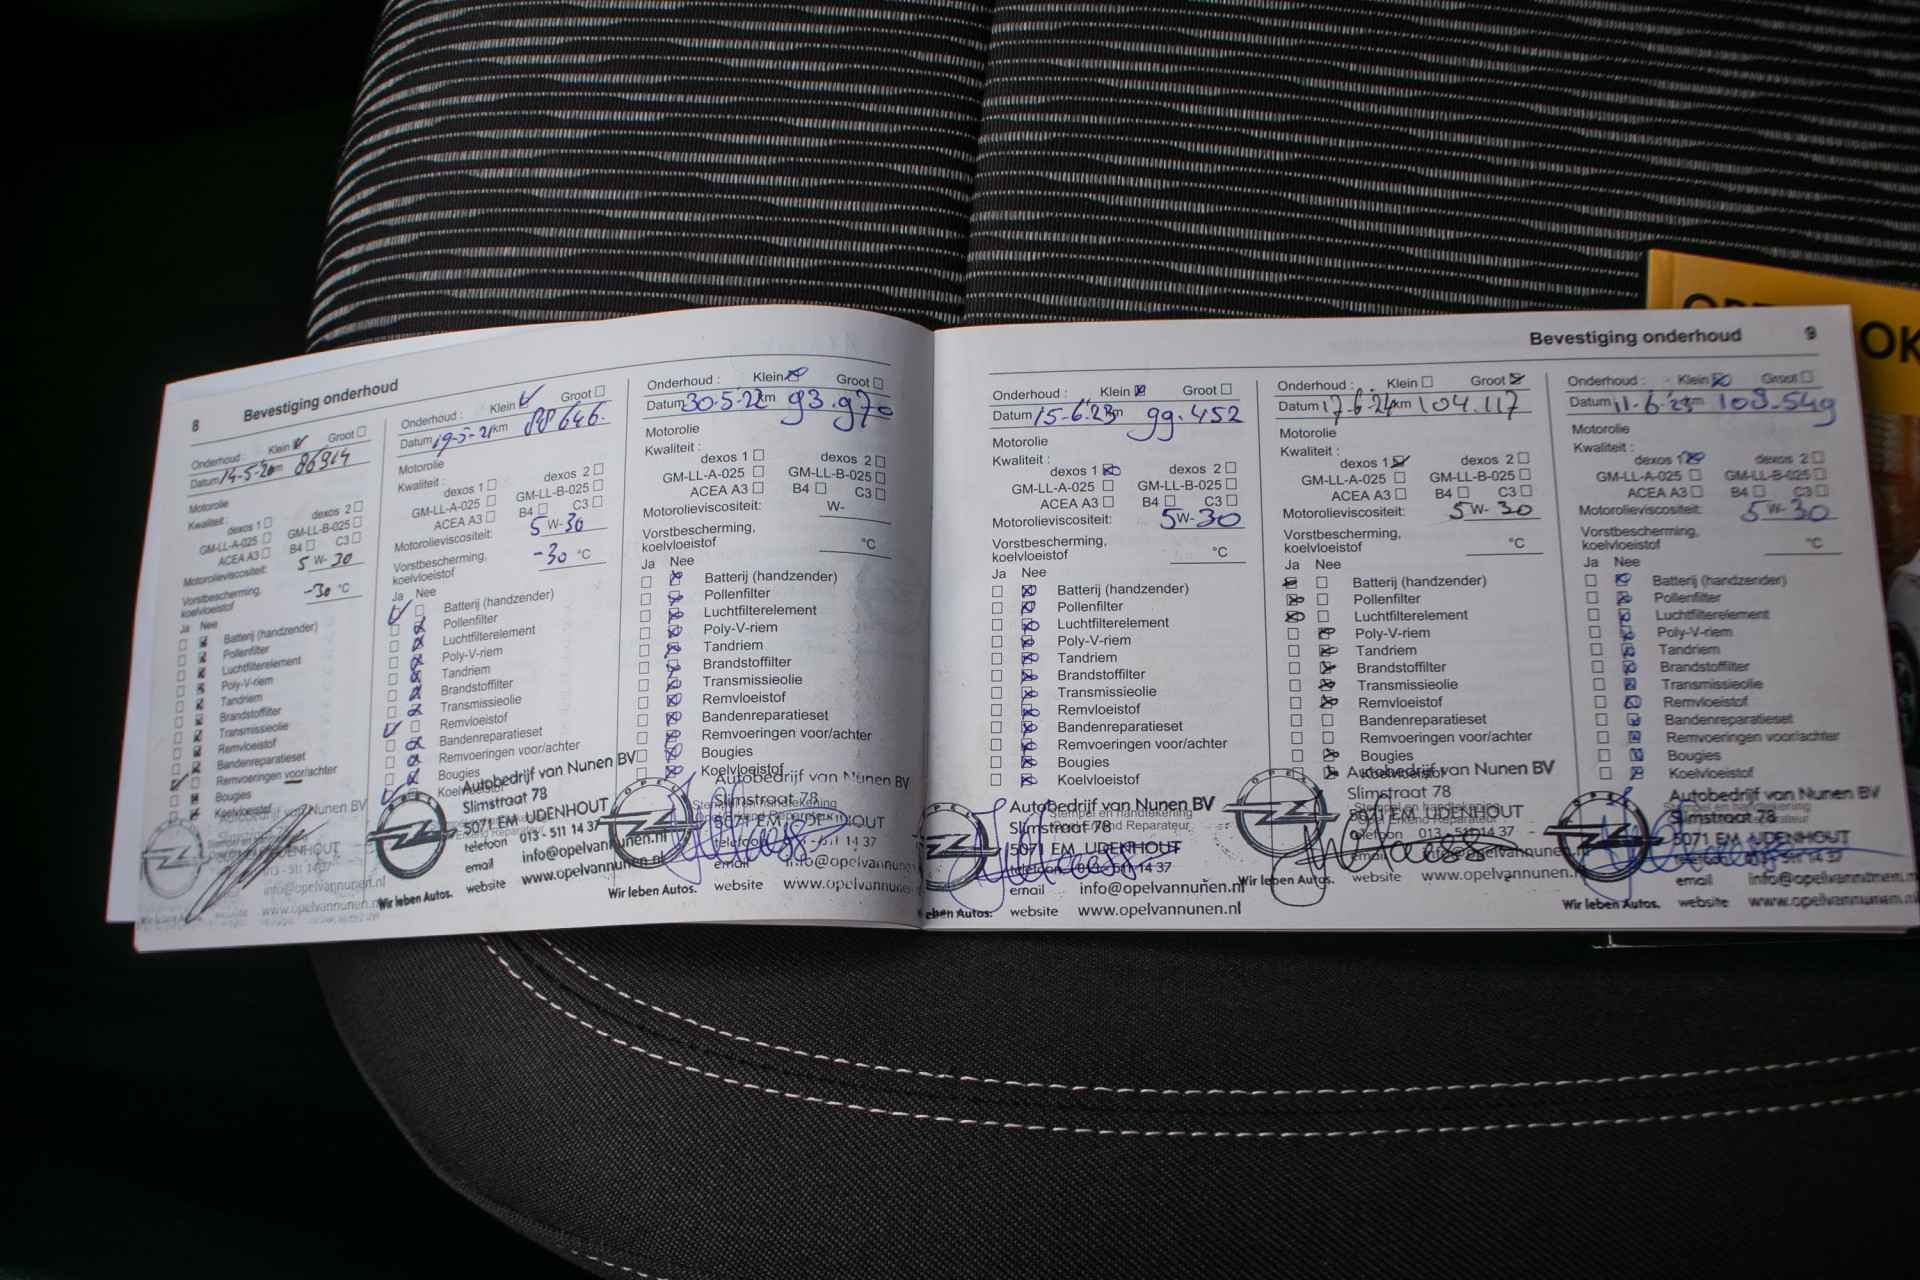 8 Bevestiging onderhoud
Onderhoud : Klein Groot
Datum 14-5-20 km 86914
Motorolie
Kwaliteit :
dexos 1 dexos 2
GM-LL-A-025 GM-LL-B-025
ACEA A3 B4 C3
Motorolieviscositeit: 5 W- 30
Vorstbescherming,
koelvloeistof -30 °C
Ja Nee
Batterij (handzender)
Pollenfilter
Luchtfilterelement
Poly-V-riem
Tandriem
Brandstoffilter
Transmissieolie
Remvloeistof
Bandenreparatieset
Remvoeringen voor/achter
Bougies
Koelvloeistof
info@opelvannunen.nl
www.opelvannunen.nl
Onderhoud : Klein Groot
Datum 19-5-21 km 88646.
Motorolie
Kwaliteit :
dexos 1 dexos 2
GM-LL-A-025 GM-LL-B-025
ACEA A3 B4 C3
Motorolieviscositeit: 5 W- 30
Vorstbescherming,
koelvloeistof -30 °C
Ja Nee
Batterij (handzender)
Pollenfilter
Luchtfilterelement
Poly-V-riem
Tandriem
Brandstoffilter
Transmissieolie
Remvloeistof
Bandenreparatieset
Remvoeringen voor/achter
Bougies
Koelvloeistof
Autobedrijf van Nunen BV
Slimstraat 78
5071 EM UDENHOUT
telefoon 013 - 511 14 37
email info@opelvannunen.nl
website www.opelvannunen.nl
Wir leben Autos.
Onderhoud : Klein Groot
Datum 30-5-22 km 93.970
Motorolie
Kwaliteit :
dexos 1 dexos 2
GM-LL-A-025 GM-LL-B-025
ACEA A3 B4 C3
Motorolieviscositeit: W-
Vorstbescherming,
koelvloeistof °C
Ja Nee
Batterij (handzender)
Pollenfilter
Luchtfilterelement
Poly-V-riem
Tandriem
Brandstoffilter
Transmissieolie
Remvloeistof
Bandenreparatieset
Remvoeringen voor/achter
Bougies
Koelvloeistof
Autobedrijf van Nunen BV
Slimstraat 78
Stempel en handtekening
5071 EM UDENHOUT
telefoon 013 - 511 14 37
email info@opelvannunen
website www.opelvannunen
Wir leben Autos.
Bevestiging onderhoud 9
Onderhoud : Klein Groot
Datum 15-6-23 km 99.452
Motorolie
Kwaliteit :
dexos 1 dexos 2
GM-LL-A-025 GM-LL-B-025
ACEA A3 B4 C3
Motorolieviscositeit: 5W-30
Vorstbescherming,
koelvloeistof °C
Ja Nee
Batterij (handzender)
Pollenfilter
Luchtfilterelement
Poly-V-riem
Tandriem
Brandstoffilter
Transmissieolie
Remvloeistof
Bandenreparatieset
Remvoeringen voor/achter
Bougies
Koelvloeistof
Autobedrijf van Nunen BV
Stempel en handtekening
Slimstraat 78
Opel Erkend Reparateur
5071 EM UDENHOUT
telefoon 013 - 511 14 37
email info@opelvannunen.nl
website www.opelvannunen.nl
leben Autos.
Onderhoud : Klein Groot
Datum 17-6-24 km 104.117
Motorolie
Kwaliteit :
dexos 1 dexos 2
GM-LL-A-025 GM-LL-B-025
ACEA A3 B4 C3
Motorolieviscositeit: 5 W- 30
Vorstbescherming,
koelvloeistof °C
Ja Nee
Batterij (handzender)
Pollenfilter
Luchtfilterelement
Poly-V-riem
Tandriem
Brandstoffilter
Transmissieolie
Remvloeistof
Bandenreparatieset
Remvoeringen voor/achter
Bougies
Koelvloeistof
OPEL
Autobedrijf van Nunen BV
Slimstraat 78
Stempel en handtekening
5071 EM UDENHOUT
telefoon 013 - 511 14 37
email info@opelvannunen
website www.opelvannunen
Wir leben Autos.
Onderhoud : Klein Groot
Datum 11-6-25 km 108.549
Motorolie
Kwaliteit :
dexos 1 dexos 2
GM-LL-A-025 GM-LL-B-025
ACEA A3 B4 C3
Motorolieviscositeit: 5 W- 30
Vorstbescherming,
koelvloeistof °C
Ja Nee
Batterij (handzender)
Pollenfilter
Luchtfilterelement
Poly-V-riem
Tandriem
Brandstoffilter
Transmissieolie
Remvloeistof
Bandenreparatieset
Remvoeringen voor/achter
Bougies
Koelvloeistof
OPEL
Autobedrijf van Nunen BV
Slimstraat 78
5071 EM UDENHOUT
telefoon 013 - 511 14 37
email info@opelvannunen.nl
website www.opelvannunen.nl
Wir leben Autos.
OK